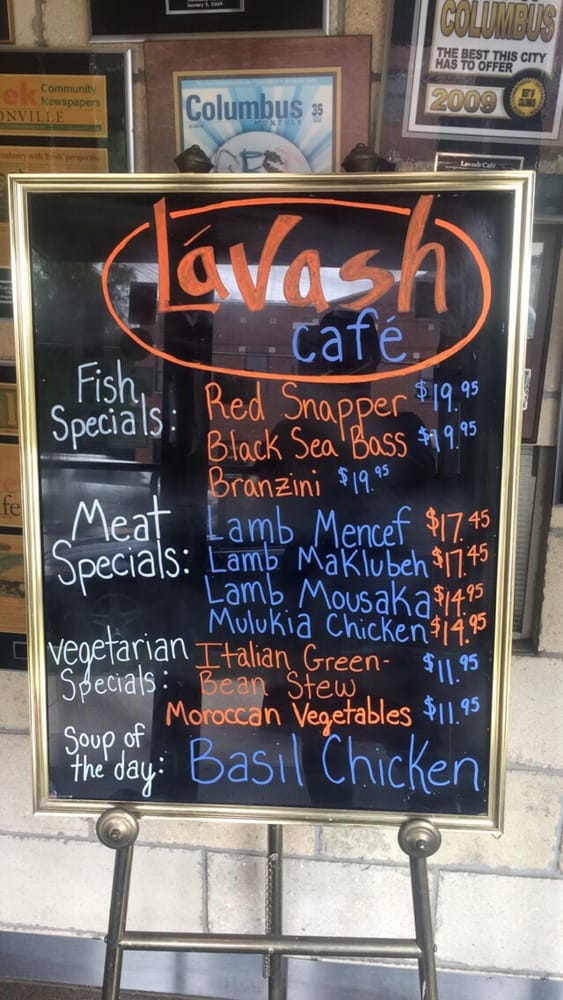 Community
Newspapers
ek
ONVILLE
Columbus
MONTHLY
35
COLUMBUS
THE BEST THIS CITY
HAS TO OFFER
2009
Lavash Café
Lávash
café
Fish
Specials:
Red Snapper $19.95
Black Sea Bass $19.95
Branzini $19.95
Meat
Specials:
Lamb Mencef $17.45
Lamb Maklubeh $17.45
Lamb Mousaka $14.95
Mulukia Chicken $14.95
vegetarian
Specials:
Italian Green- $11.95
Bean Stew
Moroccan Vegetables $11.95
Soup of
the day:
Basil Chicken